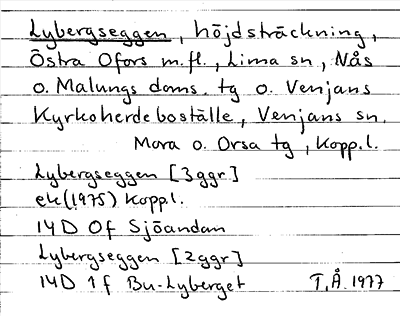 Lybergseggen, höjdsträckning,
Östra Ofors m.fl., Lima sn, Nås
o. Malungs doms. tg o. Venjans
Kyrkoherdeboställe, Venjans sn.
Mora o. Orsa tg, Kopp.l.
Lybergseggen [3ggr]
ek(1975) Kopp.l.
14D 0f Sjöändan
Lybergseggen [2ggr]
14D 1f Bu-Lyberget T.Å. 1977